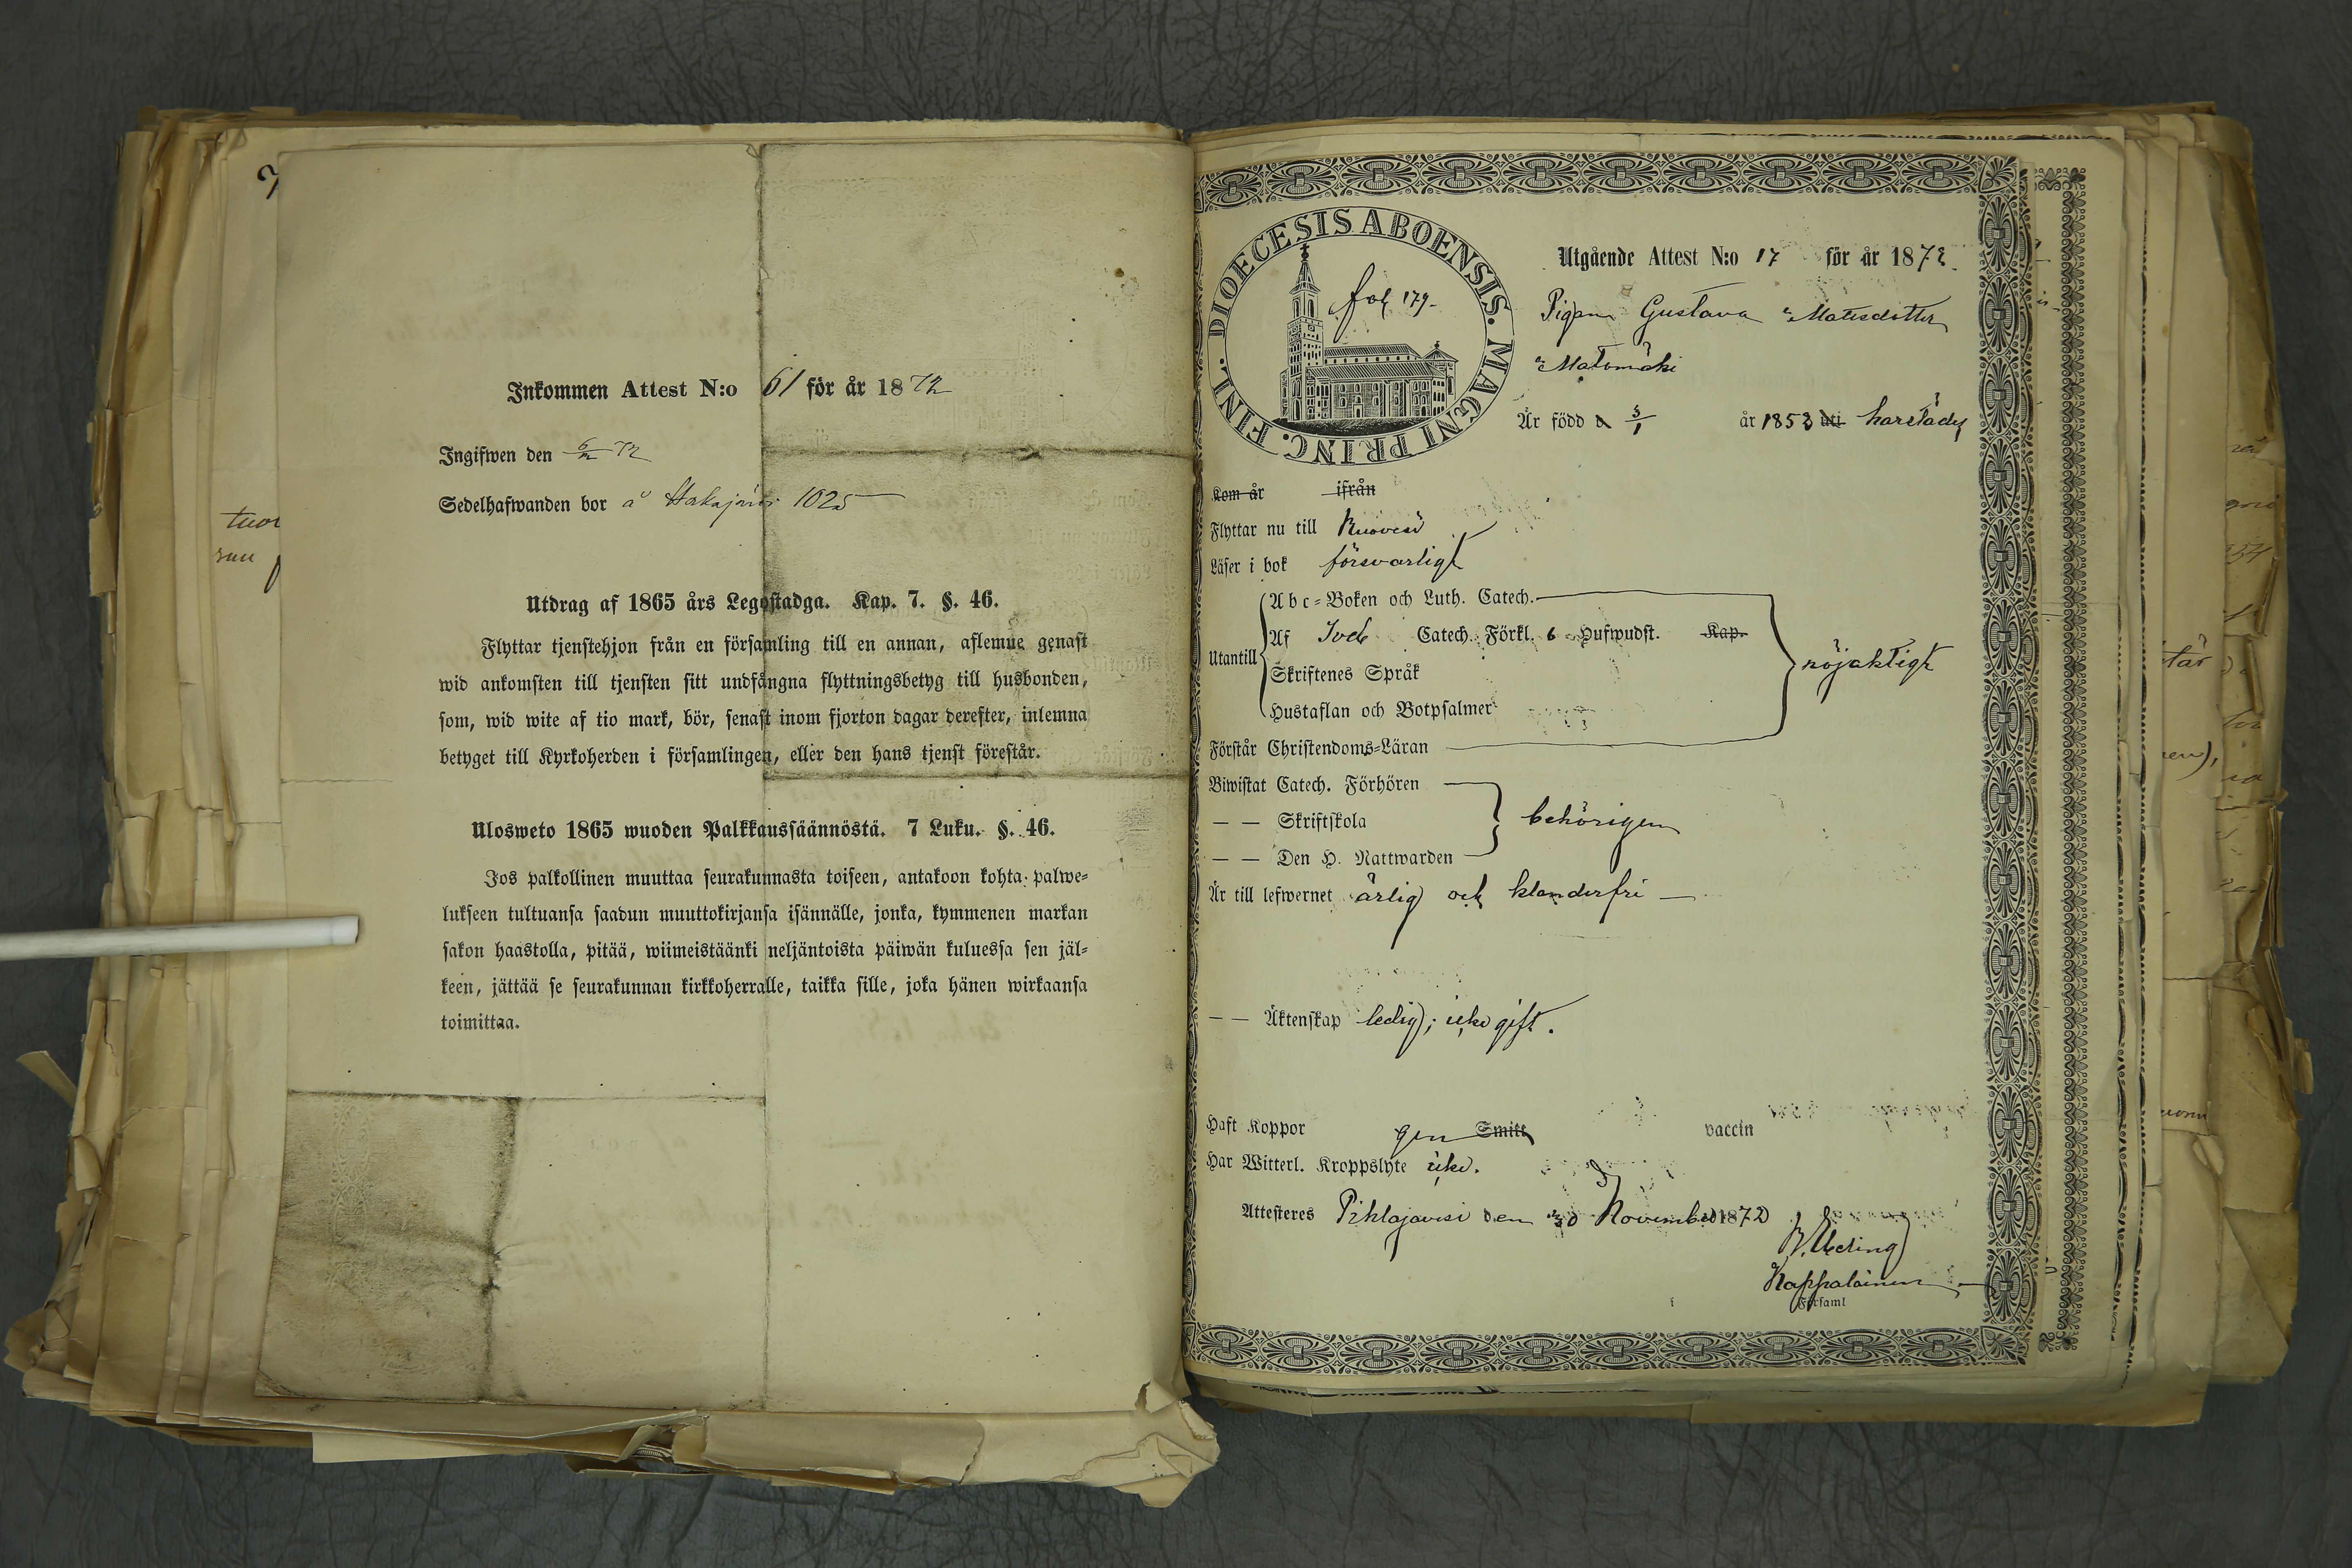 Inkommen Attest N:o 61 för år 1872
Ingifwen den 6/12 72
Sedelhafwanden bor å Hakajärvi 1025
Utdrag af 1865 års Legostadga. Kap. 7. §. 46.
Flyttar tjenstehjon från en församling till en annan, aflemne genast
wid ankomsten till tjensten sitt undfångna flyttningsbetyg till husbonden,
som, wid wite af tio mark, bör, senast inom fjorton dagar derefter, inlemna
betyget till Kyrkoherden i församlingen, eller den hans tjenst förestår.
Ulosweto 1865 wuoden Palkkaussäännöstä. 7 Luku. §. 46.
Jos palkollinen muuttaa seurakunnasta toiseen, antakoon kohta palwe=
lukseen tultuansa saadun muuttokirjansa isännälle, jonka, kymmenen markan
sakon haastolla, pitää, wiimeistäänki neljäntoista päiwän kuluessa sen jäl=
keen, jättää se seurakunnan kirkkoherralle, taikka sille, joka hänen wirkaansa
toimittaa.
DIOECESIS ABOENSIS. MAGNI PRINC. FINL.
fol 179.
Utgående Attest N:o 17 för år 1872.
Pigan Gustava Matsdotter
Matomäki
Är född d 5/1 år 1853 uti härstädes
Kom år ifrån
Flyttar nu till Ruovesi
Läser i bok försvarligt
Utantill
Abc=Boken och Luth. Catech.
Af Catech. Förkl. 6 Hufwudst. Kap.
Skriftenes Språk
Hustaflan och Botpsalmer
nöjaktigt
Förstår Christendoms=Läran
Biwistat Catech. Förhören
— — Skriftskola
— — Den H. Nattwarden
behörigen
Är till lefwernet ärlig och klanderfri —
— — Äktenskap ledig; icke gift.
Haft Koppor gen Smitt vaccin
Har Witterl. Kroppslyte icke.
Attesteres Pihlajavesi den 30 November 1872
Kappalainen
i Församl